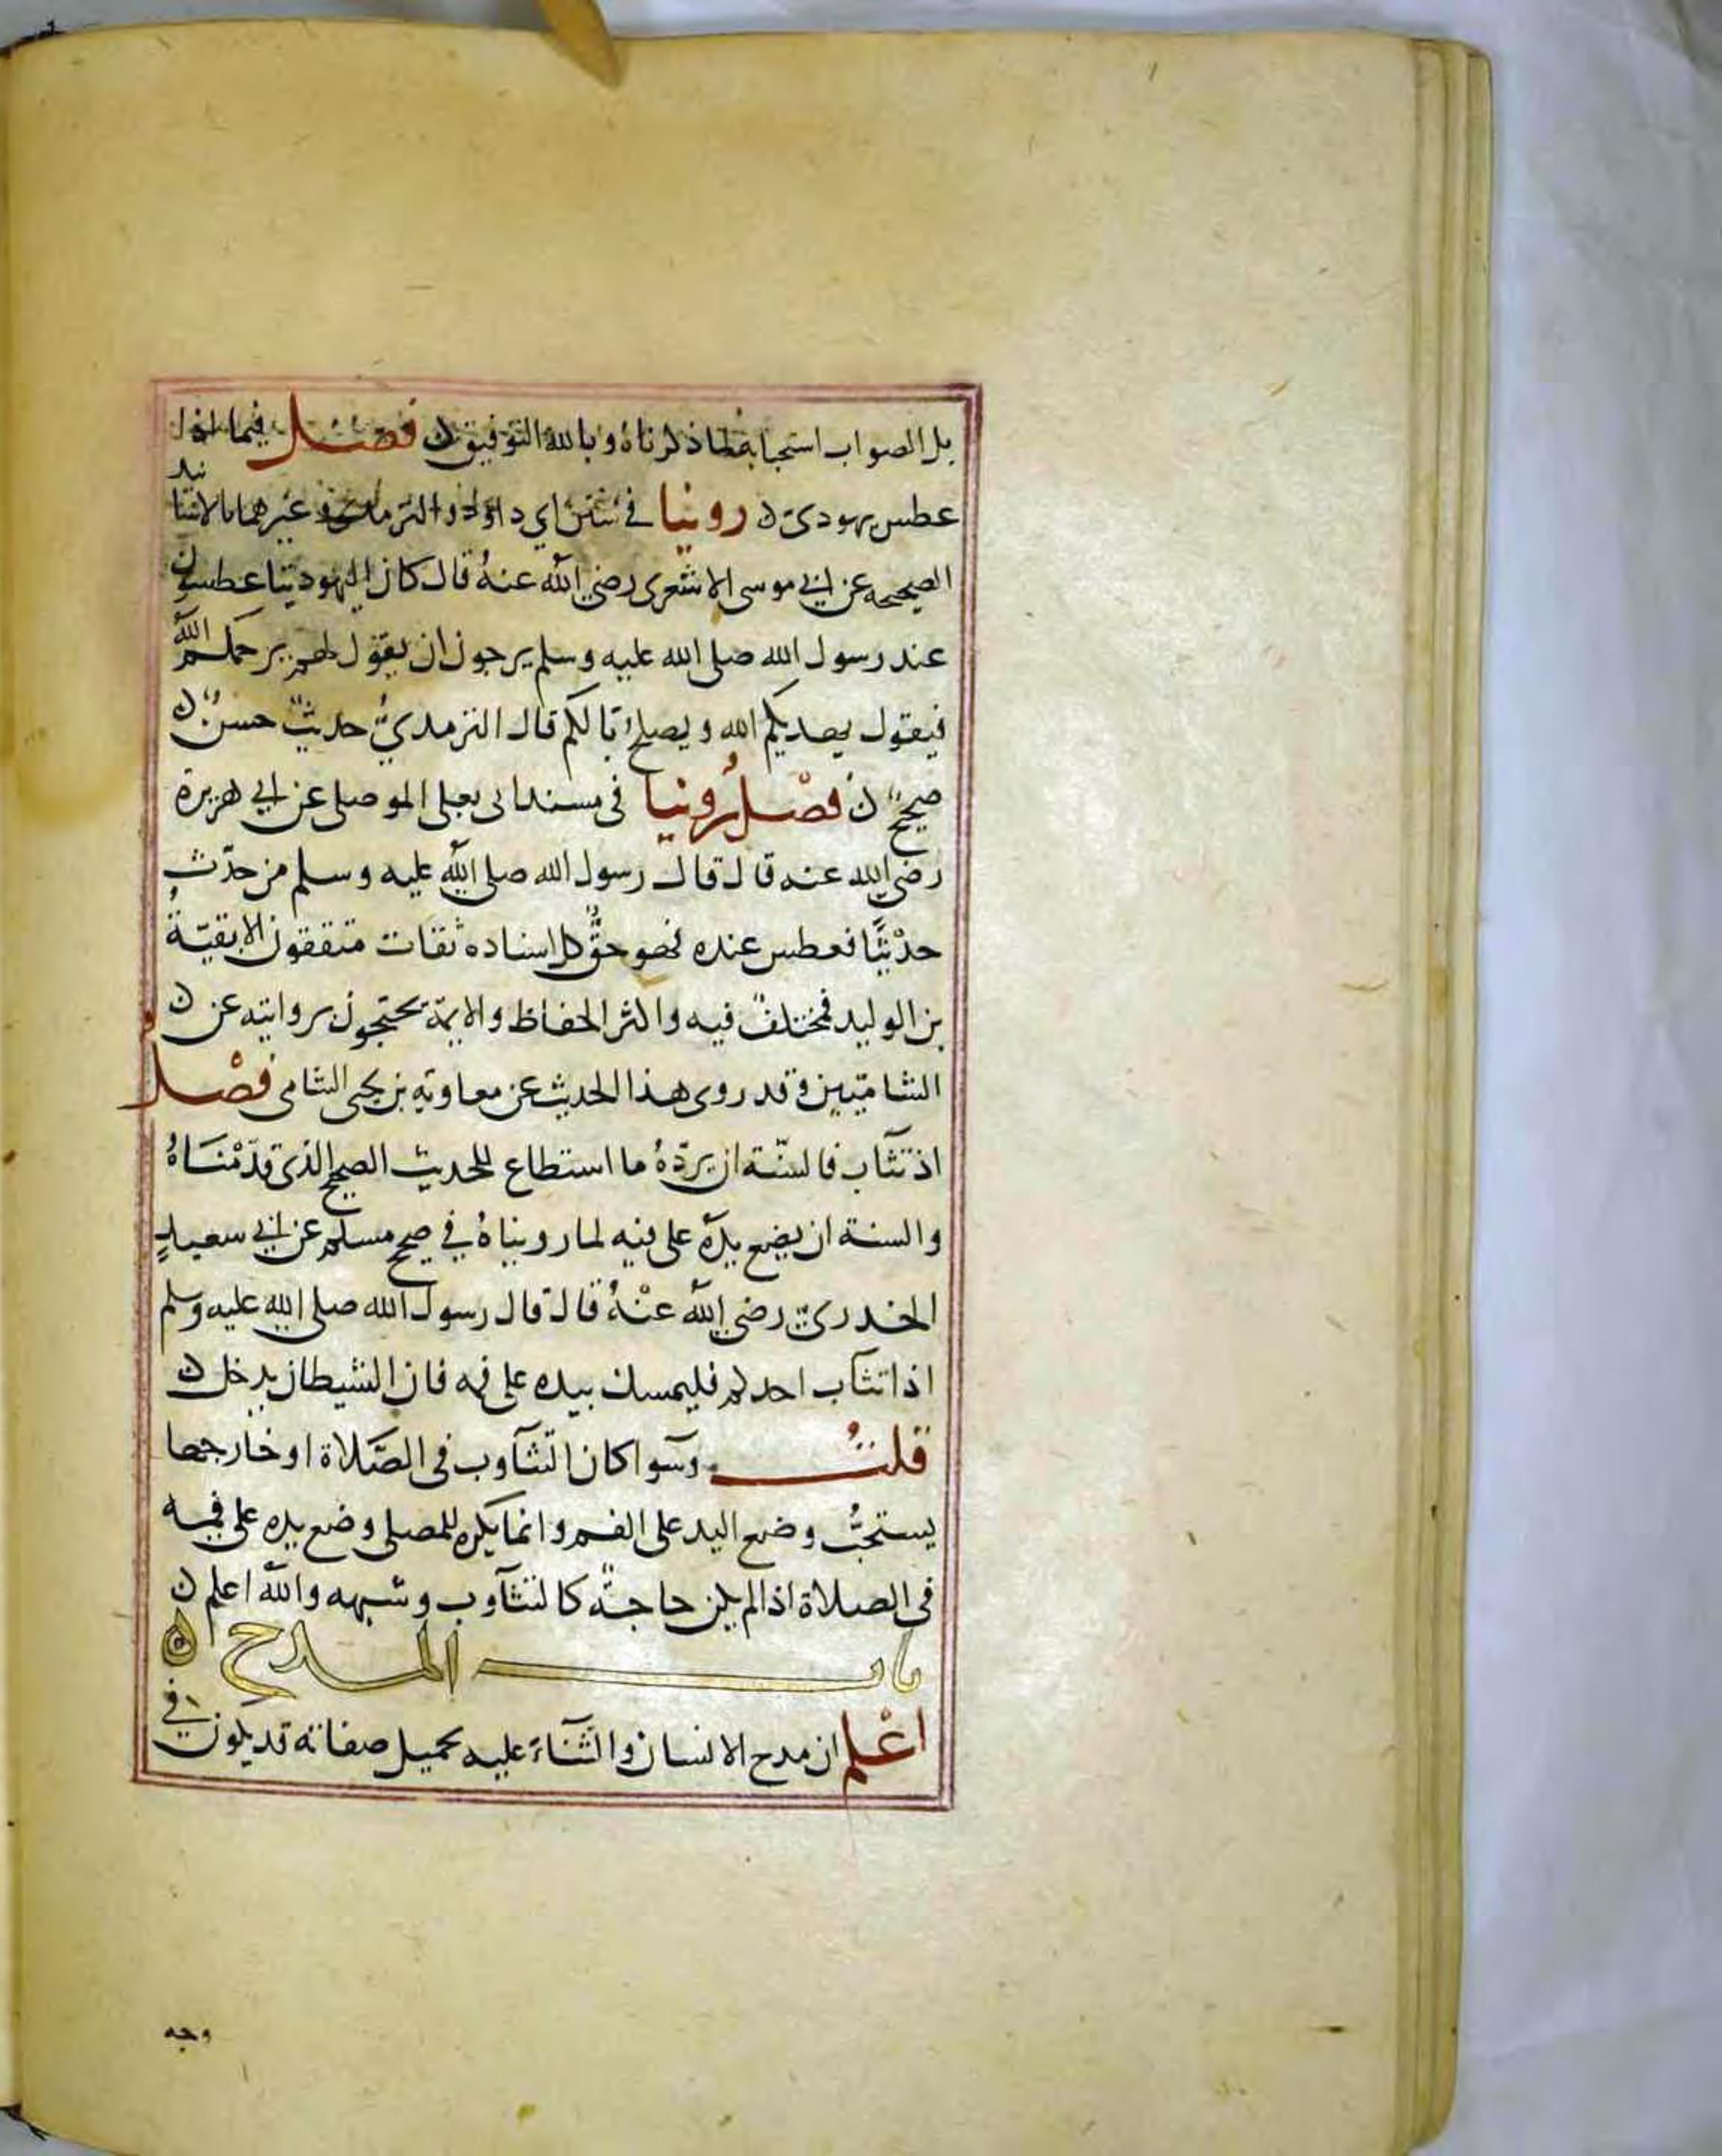 بل الصواب استحبابه لما ذكرناه وبالله التوفيق ن فصل فيما اذا
عطس يهودى ن روينا في سنن ابي داود والترمذي وغيرهما بالاسانيد
الصحيحه عن ابي موسى الاشعرى رضي الله عنهُ قال كان اليهود يتعاطسون
عند رسول الله صلى الله عليه وسلم يرجون ان يقول لهم يرحمكم الله
فيقول يهديكم الله ويصلح بالكم قال الترمديُّ حديثٌ حسنٌ ن
صحيحٌ ن فصْل رُوينا فى مسند ابى يعلى الموصلى عن ابي هريرة
رضي الله عنه قال قال رسول الله صلى الله عليه وسلم من حدّث
حدْيثًا فعطس عنده فهو حقٌّ كل اسناده ثقات متقفون الا بقيّةُ
بن الوليد فمختلفٌ فيه واكثر الحفاظ والايمة يحتجون بروايته عن ن
الشاميّين وقد روى هذا الحديث عن معاوية بن يحيى الشامى فصْل
اذ تثآب فالسنّة ان يردّهُ ما استطاع للحديث الصحيح الذى قدّمْنَاهُ
والسنة ان يضع يدَهُ على فيه لما رويناهُ في صحيح مسلم عن ابي سعيدٍ
الخدريّ رضي الله عنْهُ قال قال رسول الله صلى الله عليه وسلم
اذا تثآب احدكم فليمسك بيده على فمه فان الشيطان يدخل ن
قلتُ وسَوا كان التثآوب فى الصَّلاة او خارجها
يستحبُّ وضع اليد على الفم وانما يكره للمصلى وضع يده على فمه
فى الصلاة اذا لم يكن حاجةٌ كالتثآوب وشبهه والله اعلم ن
باب المدح ن
اعْلم ان مدح الانسان والثَّناءَ عليه بجميل صفاته قد يكون في
وجه